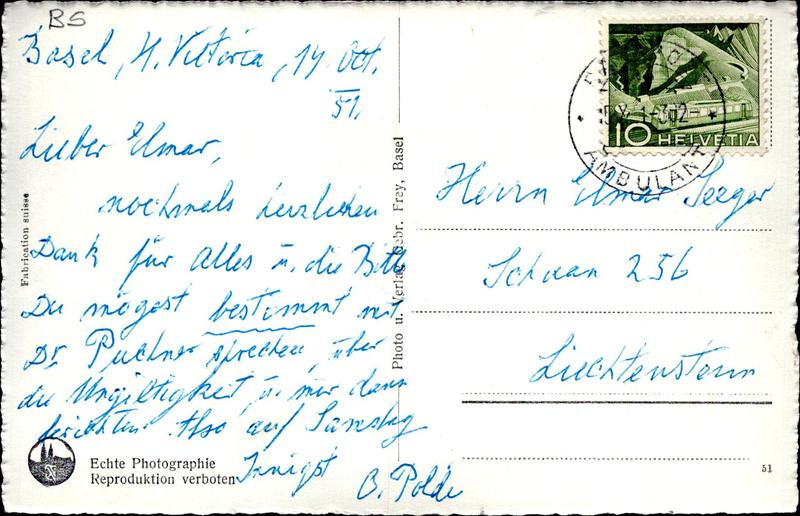 BS
Basel, H. Viktoria, 14. Oct.
51.
Lieber Elmar,
nochmals herzlichen
Dank für Alles u. die Bitte
Du mögest bestimmt mit
Dr. Puchner sprechen, über
die Ungiltigkeit u. mir dann
berichten. Also auf Samstag
Innigst
B. Polde
Fabrication suisse
Echte Photographie
Reproduktion verboten
Photo u. Verlag Gebr. Frey, Basel
10 HELVETIA
AMBULANT
Herrn Elmar Seeger
Schaan 256
Liechtenstein
51